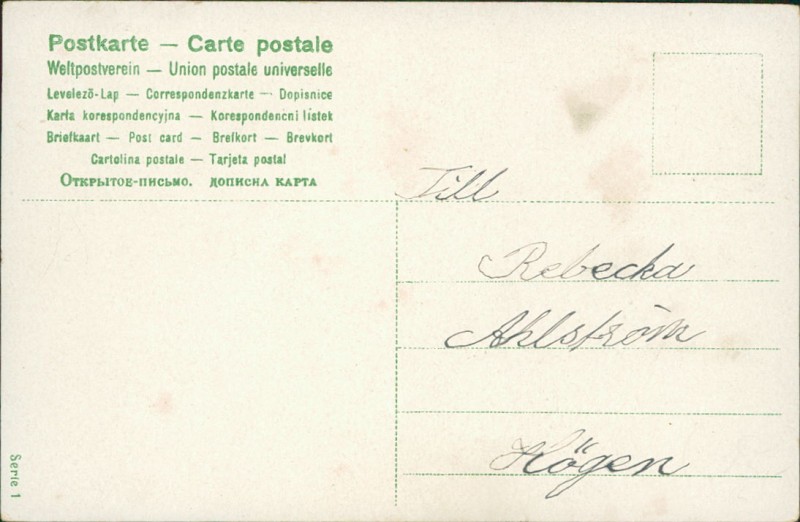 Postkarte — Carte postale
Weltpostverein — Union postale universelle
Levelező-Lap — Correspondenzkarte — Dopisnice
Karta korespondencyjna — Korespondenční lístek
Briefkaart — Post card — Brefkort — Brevkort
Cartolina postale — Tarjeta postal
Открытое-письмо. дописна карта
Till
Rebecka
Ahlström
Högen
Serie 1